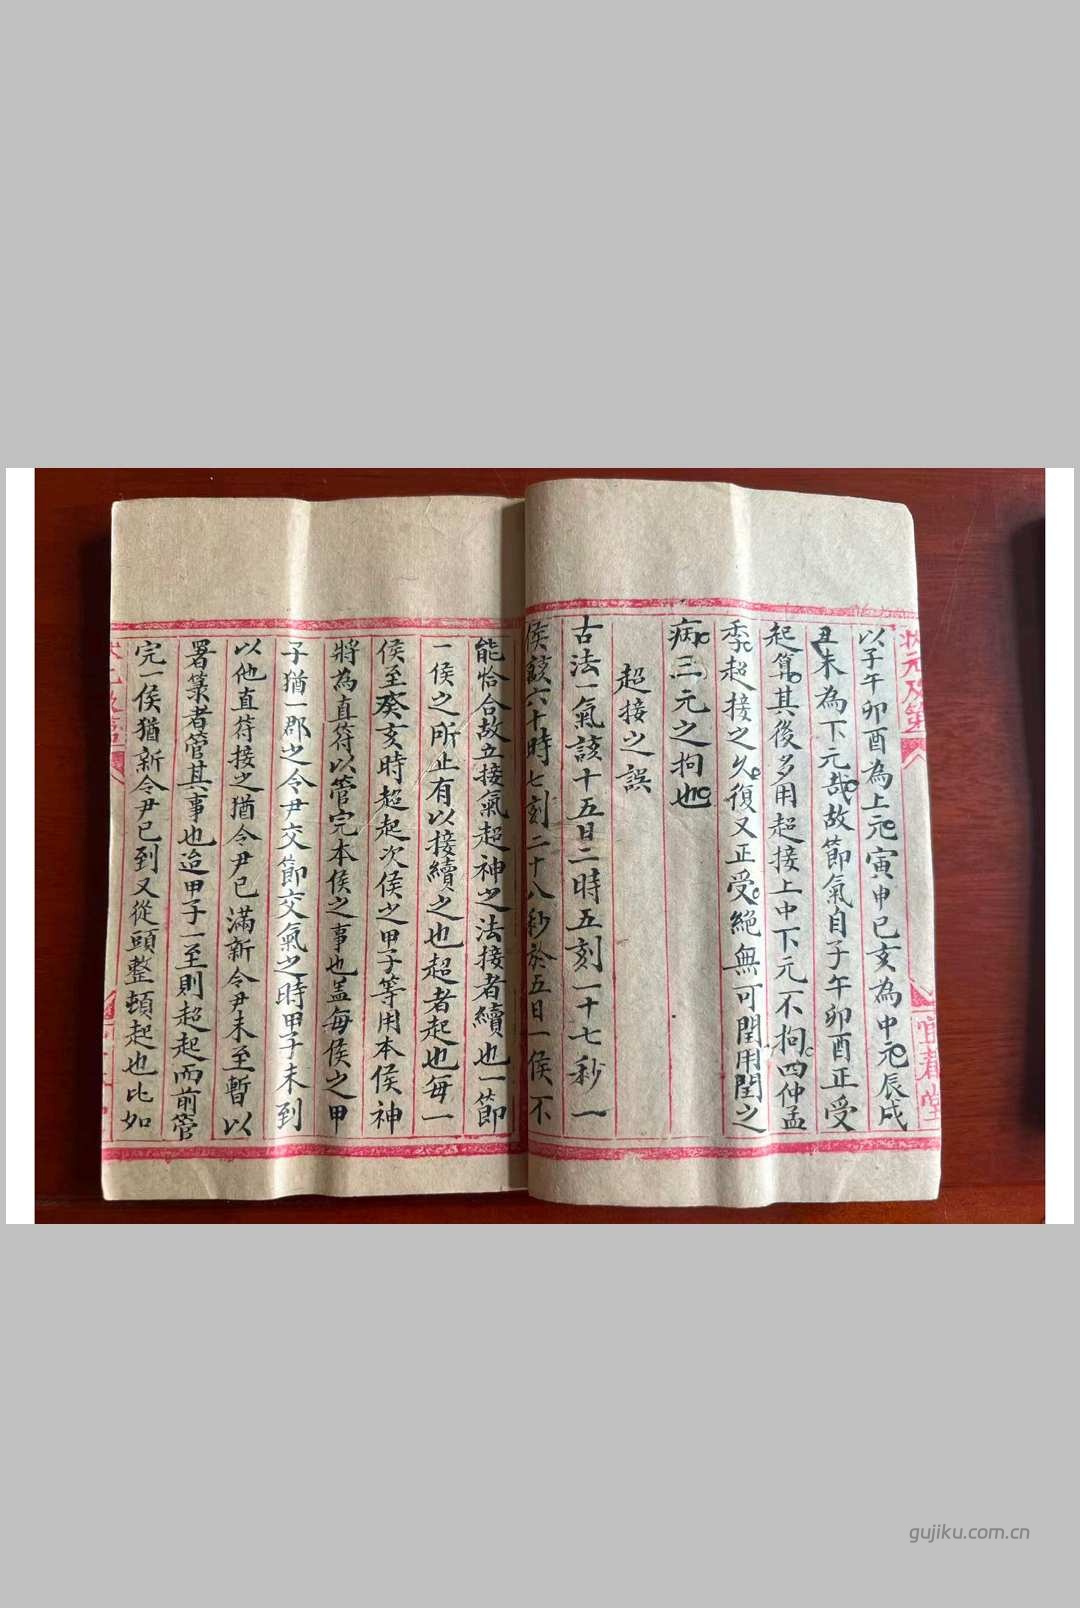 以子午卯酉為上元寅申巳亥為中元辰戌
丑未為下元哉故節氣自子午卯酉正受
起算其後多用超接上中下元不拘四仲孟
季超接之久復又正受絕無可閏用閏之
病三元之拘也
超接之誤
古法一氣該十五日二時五刻一十七秒一
侯該六十時七刻二十八秒於五日一侯不
能恰合故立接氣超神之法接者續也一節
一侯之所止有以接續之也超者起也每一
侯至癸亥時超起次侯之甲子等用本侯神
將為直符以管完本侯之事也盖每侯之甲
子猶一郡之令尹交節交氣之時甲子未到
以他直符接之猶令尹已滿新令尹未至暫以
署篆者管其事也迨甲子一至則超起而前管
完一侯猶新令尹已到又從頭整頓起也比如
狀元及第
宜春堂
gujiku.com.cn